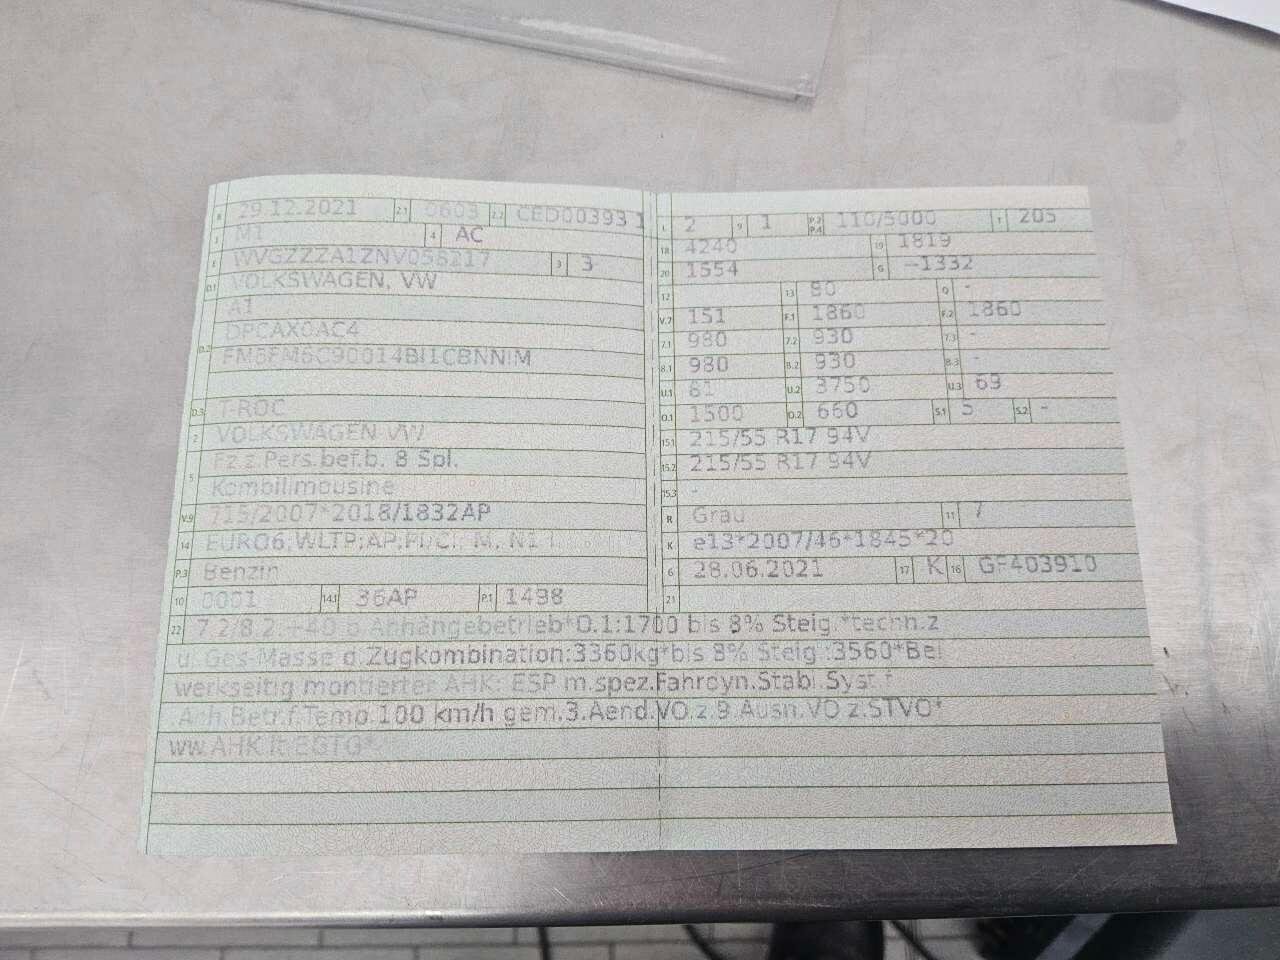 B 29.12.2021 2.1 0603 2.2 CED00393 1
J M1 4 AC
E WVGZZZA1ZNV058217 3 3
D.1 VOLKSWAGEN, VW
A1
D.2 DPCAX0AC4
FM6FM6C90014BI1CBNNIM
D.3 T-ROC
2 VOLKSWAGEN VW
5 Fz.z.Pers.bef.b. 8 Spl.
Kombilimousine
V.9 715/2007*2018/1832AP
14 EURO6;WLTP;AP;PI/CI; M, N1 I
P.3 Benzin
10 0001 14.1 36AP P.1 1498
L 2 9 1 P.2 P.4 110/5000 T 205
18 4240 19 1819
20 1554 G -1332
12 13 80 Q -
V.7 151 F.1 1860 F.2 1860
7.1 980 7.2 930 7.3 -
8.1 980 8.2 930 8.3 -
U.1 81 U.2 3750 U.3 69
O.1 1500 O.2 660 S.1 5 S.2 -
15.1 215/55 R17 94V
15.2 215/55 R17 94V
15.3 -
R Grau 11 7
K e13*2007/46*1845*20
6 28.06.2021 17 K 16 GF403910
21
22 7.2/8.2:+40 b.Anhängebetrieb*O.1:1700 bis 8% Steig.*techn.z
u. Ges-Masse d.Zugkombination:3360kg*bis 8% Steig.:3560*Bei
werkseitig montierter AHK: ESP m.spez.Fahrdyn.Stabi.Syst.f
.Anh.Betr.f.Temp.100 km/h gem.3.Aend.VO.z.9.Ausn.VO z.STVO*
ww.AHK lt.EGTG*